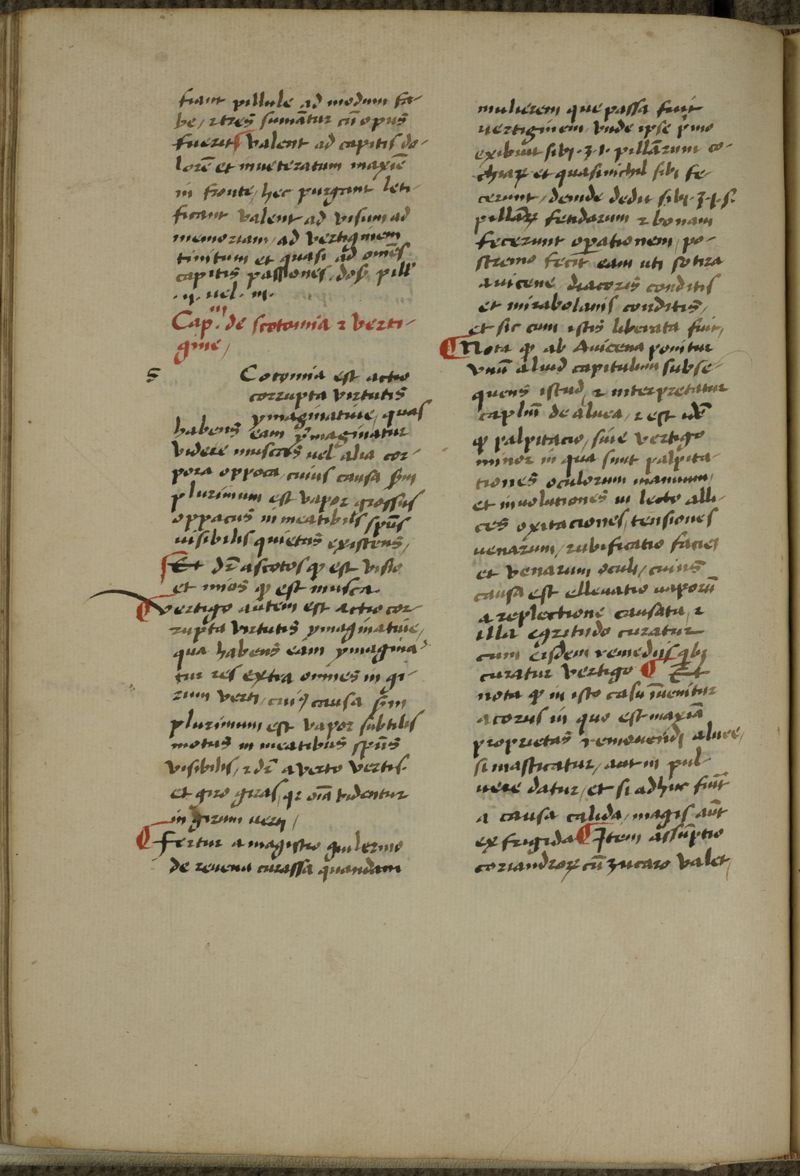 fiant pillule ad modum fa-
be / et tres sumāt̄ur cū opus
fuerit valent ad capitis do-
lorē et inueteratum maxīe
in fronte / hec purgant leti-
ficant valent ad visum ad
memoriam / ad vertiginem
tinitum et quasi ad om̄es
capitis passiones. dos̄. pill'
. ij. uel . iij.
Cap.m de scotomia ⁊ verti-
gine /
s Cotomia est actio
corrupta virtutis
ymaginatiue / quas
habens eam ymaginatur
videre muscas uel alia cor-
pora oppoca, cuius causa s̄m
plurimum est vapor grossus
oppacus in meatibus sp̄us
uisibilis quietus existens /
Et dr̄ a scotos qꝫ est visio
et mios qꝫ est musca
vertigo autem est actio cor-
rupta virtutis ymaginatiue /
qua habens eam ymagina-
tur res extra omnes in gi-
rum verti / cui9 causa s̄m
plurimum est vapor subtilis
motus in meatibus sp̄us
visibilis / ⁊ dr̄ a verto vertis.
et giro giras / qr oīa videntur
in girum verti /
Fertur a magistro guilermo
de reuena curassa quandam
mulierem que passa fuit
vertiginem vnde ipse p̄mo
exibuit sibi . ʒ . i . pillarum co-
chiaꝝ et quasi nichil sibi fe-
cerunt / deinde dedit sibi . ʒ . i . s̄.
pillaꝝ fetidarum ⁊ bonam
fecerunt opationem / po-
stremo fecit eam uti sotira
auicene diacoris conditis
et mirabolanis conditis /
et sic cum istis liberata fuit /
Nota qꝫ ab Auicena ponitur
vnū aliud capitulum subse-
quens istud / ⁊ interpretatur
cap̄lm̄ de aluea / ⁊ est idē
qꝫ palpitacio / siue vertigo
minor in qua sunt palpita-
tiones oculorum manuum /
et inuolutiones in lecto alli-
ces oxitaciones / tensiones
uenarum / rubificatio faciei
et venarum oculi / cuius
causa est elleuatio vaporū
a replectione causata / ⁊
illa egritudo curatur
cum eisdem remediis qbꝫ
curatur vertigo Et
nota qꝫ in isto casu īuenitur
acorus in quo est maxiā
proprietas remouendi aluee /
si masticatur / aut in pul-
uere datur / et si adhuc fuit̄
a causa calida / magis aūt
ex frigida Item assūptio
coriandroꝝ cū zucaro valet /